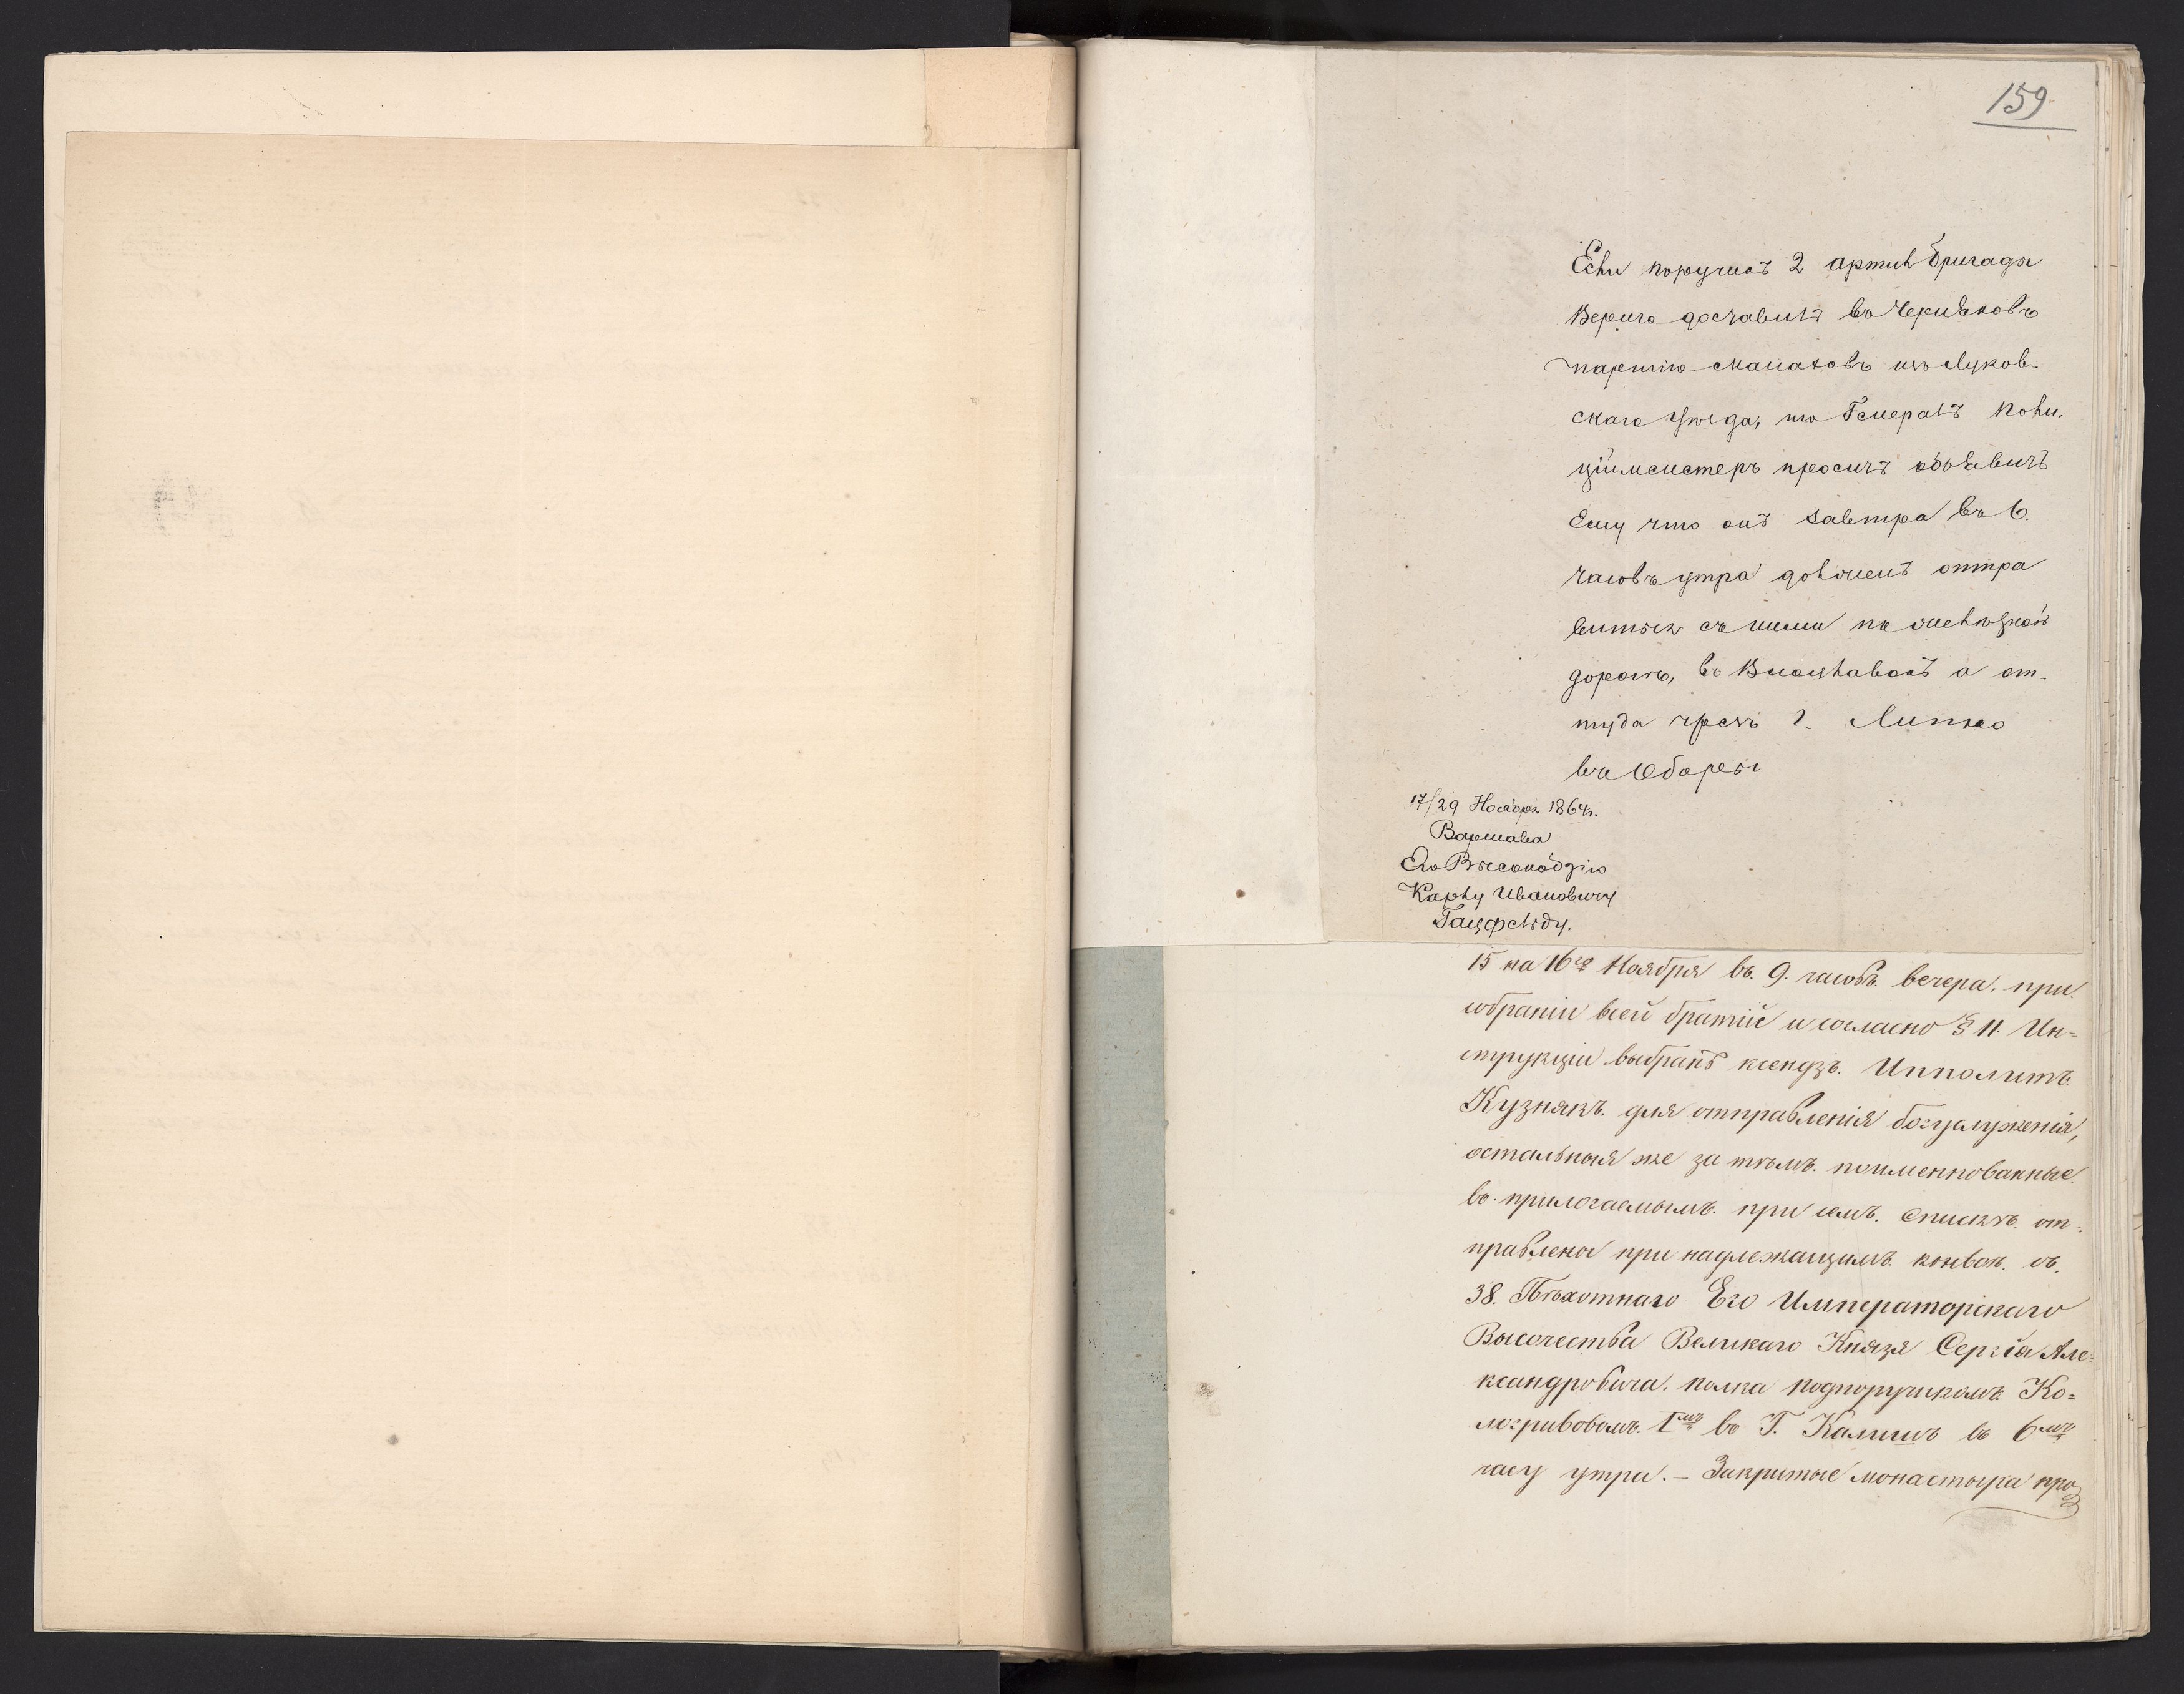 159.
Если поручикъ 2 артил бригады
Верига доставитъ въ Черняковъ
партію монаховъ изъ Луков-
скаго Уѣзда, то Генералъ Поли-
ціймейстеръ проситъ объявить
Ему что онъ завтра въ 6.
часовъ утра долженъ отпра
виться съ ними по желѣзной
дорогѣ, въ Влоцлавокъ а от-
туда чрезъ г. Липно
въ Оборы
17/29 Ноября 1864 г.
Варшава
Его Высокобдію
Карлу Ивановичу
Гацфельду.
15 на 16го Ноября въ. 9. часовъ. вечера. при
собраніи всей братіи и согласно § 11. Ин=
струкціи выбранъ ксендзъ. Ипполитъ
Кузнякъ. для отправленія богуслуженія,
остальныя же за тѣмъ. поименнованные
во. прилогаемымъ. при семъ. спискѣ. от=
правлены при надлежащимъ. конвоѣ. съ.
38. Пѣхотнаго Его Императорскаго
Высочества Великаго Князя Сергія Але=
ксандровича. полка подпоручикомъ. Ко=
логривовымъ. Iмъ во Г. Калишъ въ 6мъ
часу утра. — Закрытые монастыря про